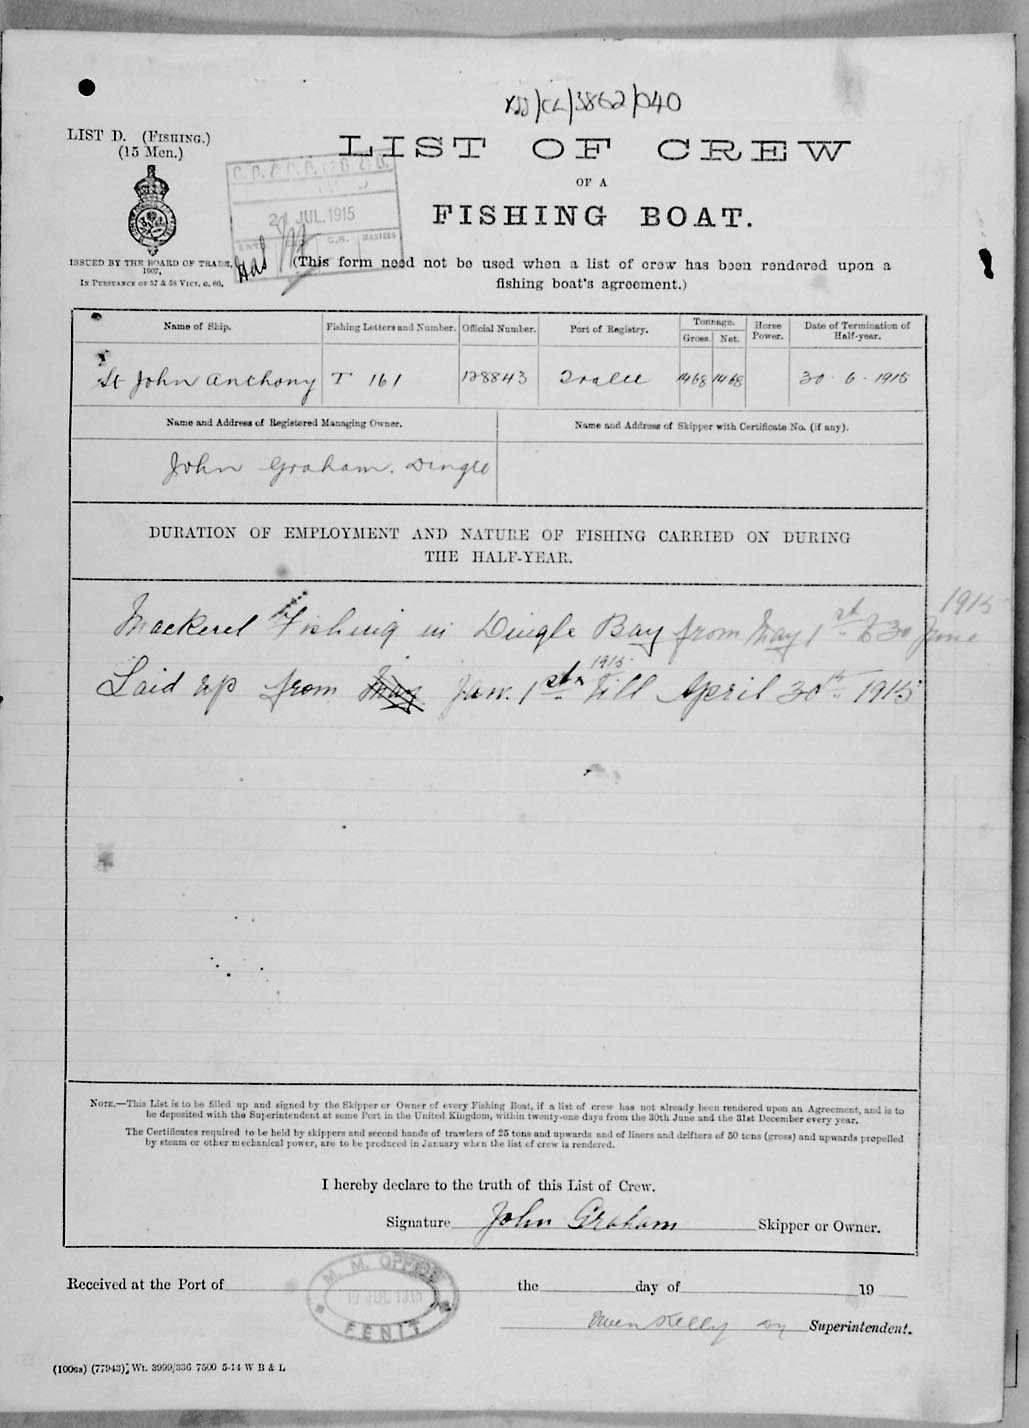 RSS/CL/3862/040
LIST D. (FISHING.)
(15 Men.)
LIST OF CREW
OF A
FISHING BOAT.
21 JUL. 1915
ENT. C.R. MASTERS
ISSUED BY THE BOARD OF TRADE,
1907,
IN PURSUANCE OF 57 & 58 VICT. c. 60.
(This form need not be used when a list of crew has been rendered upon a
fishing boat's agreement.)
Name of Ship. Fishing Letters and Number. Official Number. Port of Registry. Tonnage. Gross. Net. Horse Power. Date of Termination of Half-year.
St John Anthony T 161 128843 Tralee 1468 1468 30 - 6 - 1915
Name and Address of Registered Managing Owner. Name and Address of Skipper with Certificate No. (if any).
John Graham. Dingle
DURATION OF EMPLOYMENT AND NATURE OF FISHING CARRIED ON DURING
THE HALF-YEAR.
Mackerel Fishing in Dingle Bay from May 1st to 30 June 1915
Laid up from Jan. 1st 1915 till April 30th 1915
NOTE.—This List is to be filled up and signed by the Skipper or Owner of every Fishing Boat, if a list of crew has not already been rendered upon an Agreement, and is to
be deposited with the Superintendent at some Port in the United Kingdom, within twenty-one days from the 30th June and the 31st December every year.
The Certificates required to be held by skippers and second hands of trawlers of 25 tons and upwards and of liners and drifters of 50 tons (gross) and upwards propelled
by steam or other mechanical power, are to be produced in January when the list of crew is rendered.
I hereby declare to the truth of this List of Crew.
Signature John Graham Skipper or Owner.
M. M. OFFICE
17 JUL 1915
FENIT
Received at the Port of the day of 19
Owen Kelly Superintendent.
(100gs) (77943) Wt. 3999/336 7500 5-14 W B & L